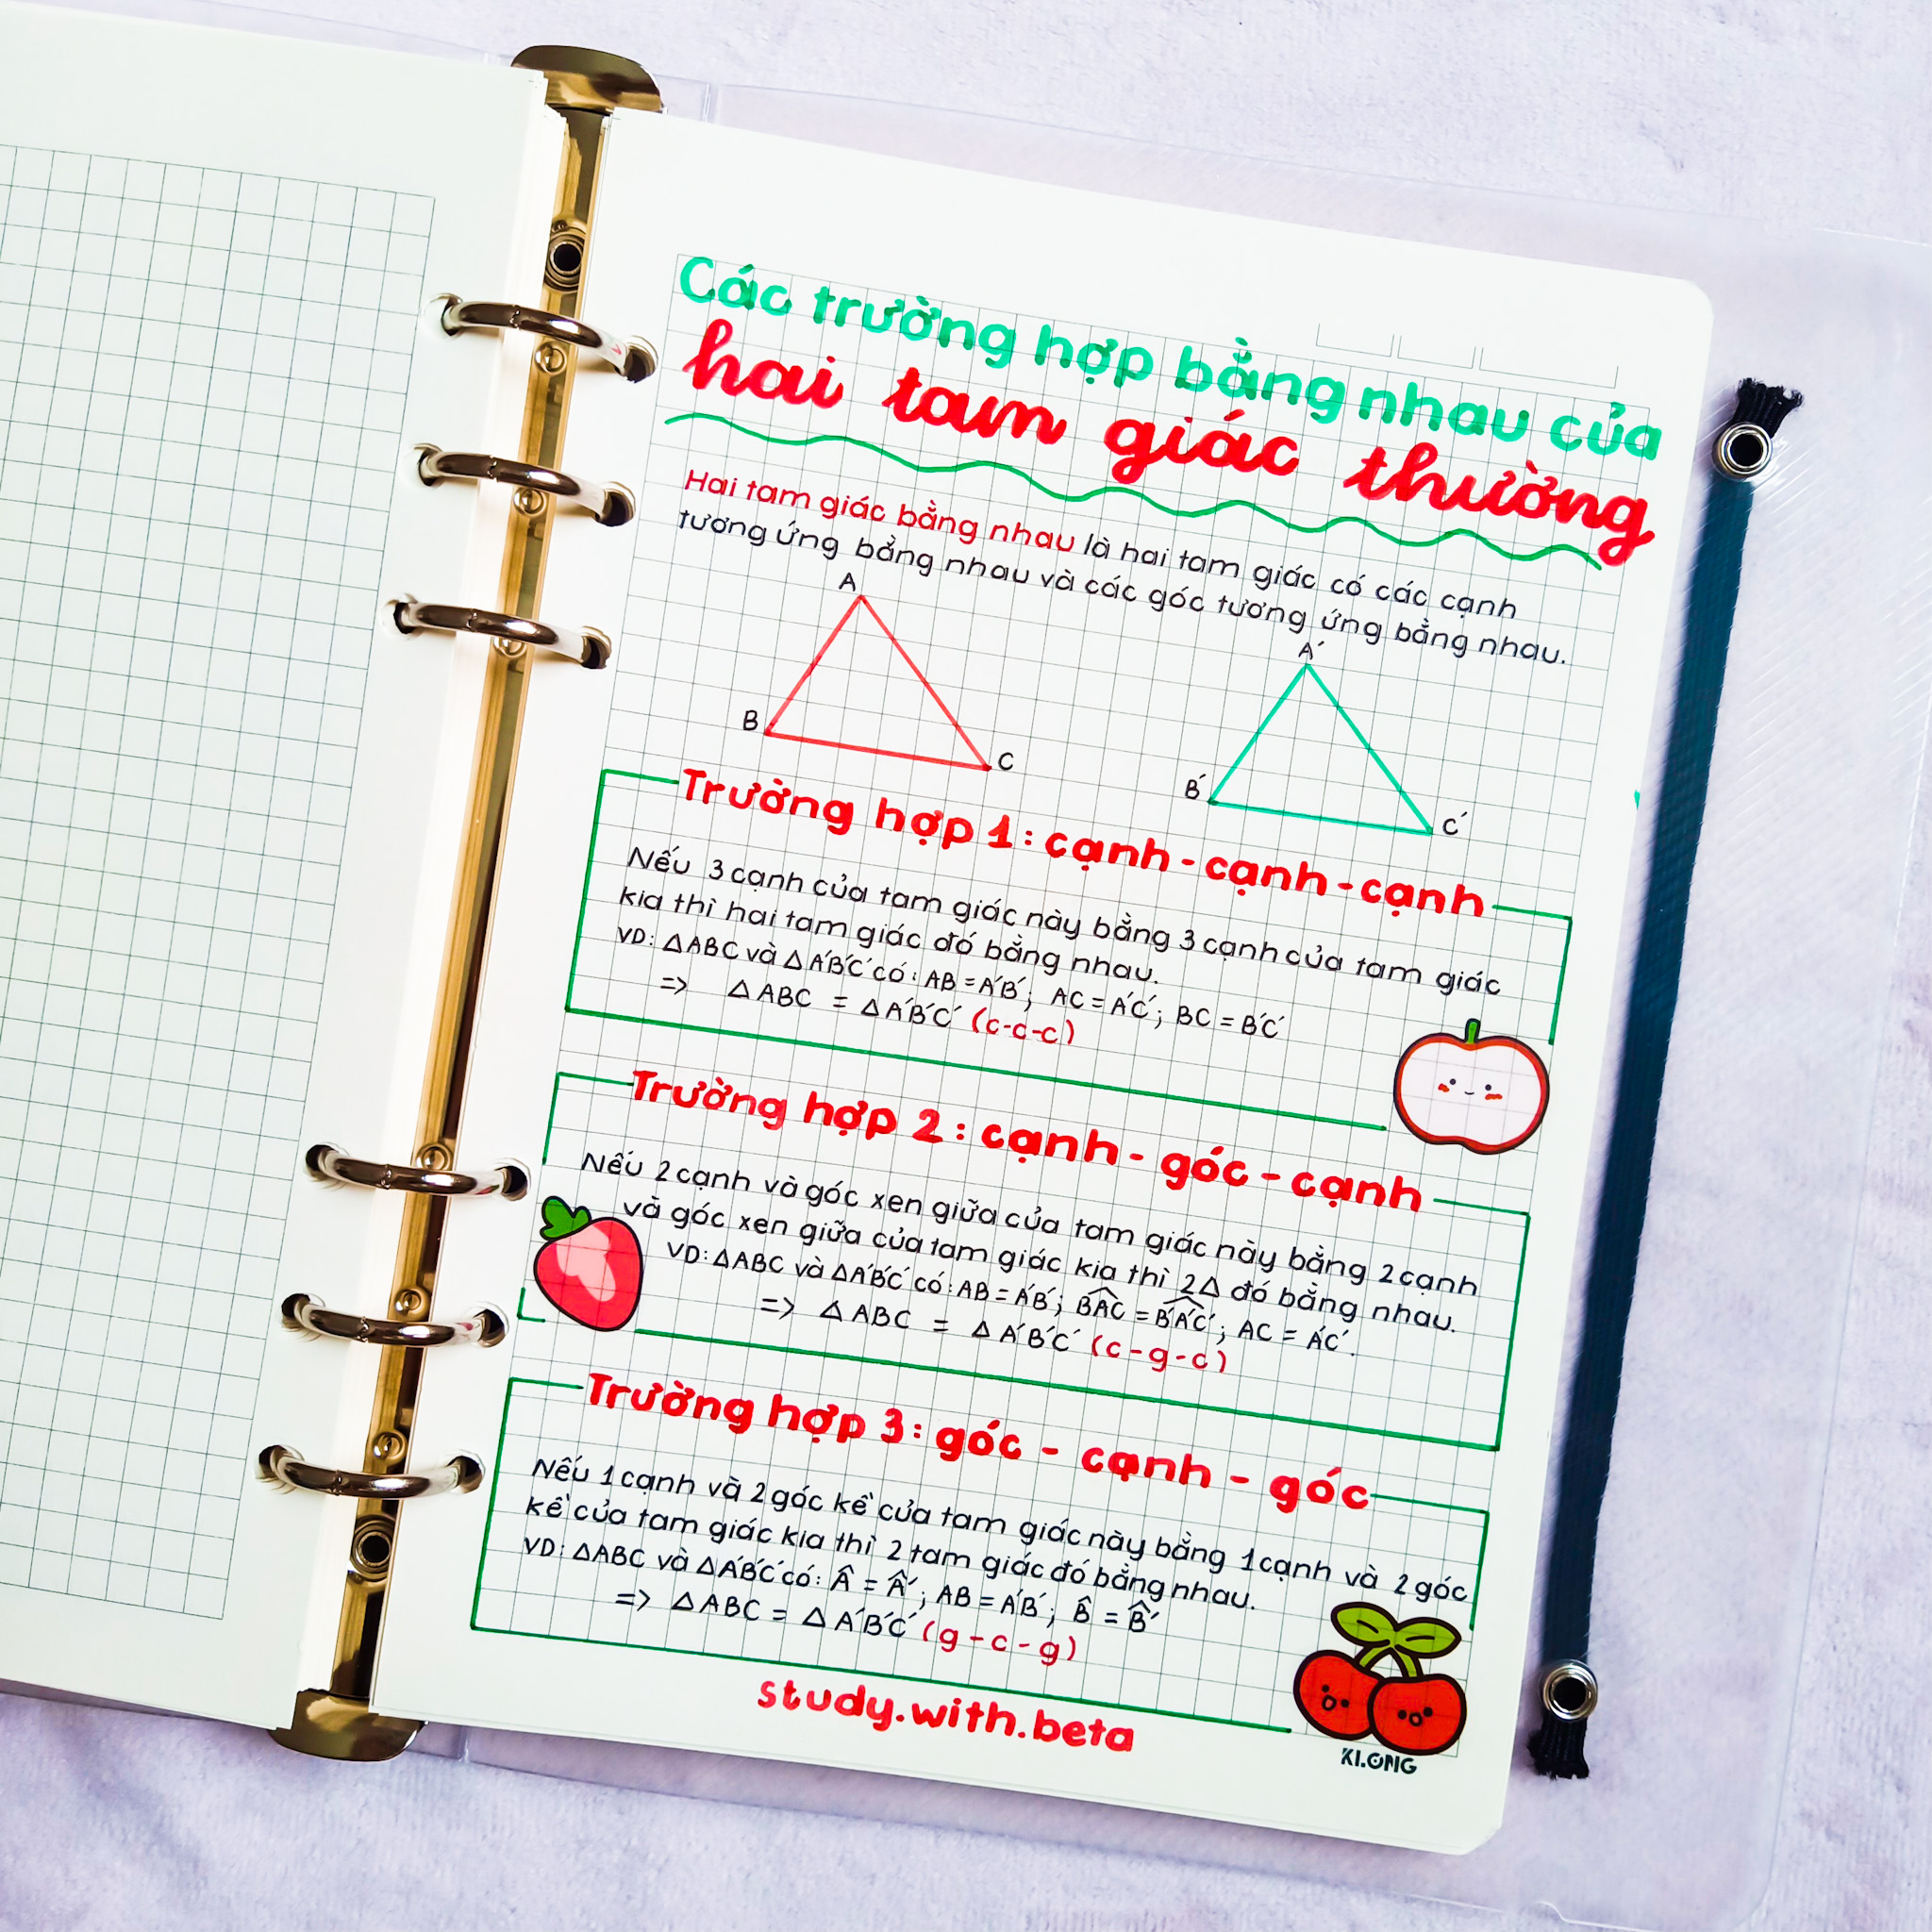 Các trường hợp bằng nhau của
hai tam giác thường
Hai tam giác bằng nhau là hai tam giác có các cạnh
tương ứng bằng nhau và các góc tương ứng bằng nhau.
A
B
C
A´
B´
C´
Trường hợp 1: cạnh - cạnh - cạnh
Nếu 3 cạnh của tam giác này bằng 3 cạnh của tam giác
kia thì hai tam giác đó bằng nhau.
VD: ΔABC và ΔA´B´C´ có: AB = A´B´; AC = A´C´; BC = B´C´
=> ΔABC = ΔA´B´C´ (c-c-c)
Trường hợp 2: cạnh - góc - cạnh
Nếu 2 cạnh và góc xen giữa của tam giác này bằng 2 cạnh
và góc xen giữa của tam giác kia thì 2Δ đó bằng nhau.
VD: ΔABC và ΔA´B´C´ có: AB = A´B´; BÂC = B´Â´C´; AC = A´C´.
=> ΔABC = ΔA´B´C´ (c-g-c)
Trường hợp 3: góc - cạnh - góc
Nếu 1 cạnh và 2 góc kề của tam giác này bằng 1 cạnh và 2 góc
kề của tam giác kia thì 2 tam giác đó bằng nhau.
VD: ΔABC và ΔA´B´C´ có: Â = Â´; AB = A´B´; B̂ = B̂´
=> ΔABC = ΔA´B´C´ (g-c-g)
study.with.beta
KLONG